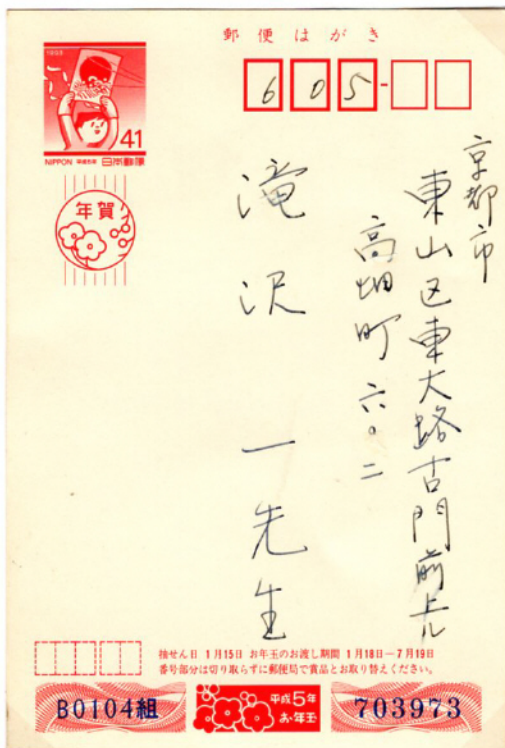 郵便はがき
1993
41
NIPPON 平成5年 日本郵便
605-
年賀
京都市
東山区東大路古門前上ル
高畑町六〇二
滝沢一先生
抽せん日 1月15日 お年玉のお渡し期間 1月18日―7月19日
番号部分は切り取らずに郵便局で賞品とお取り替えください。
B0104組
平成5年
お年玉
703973